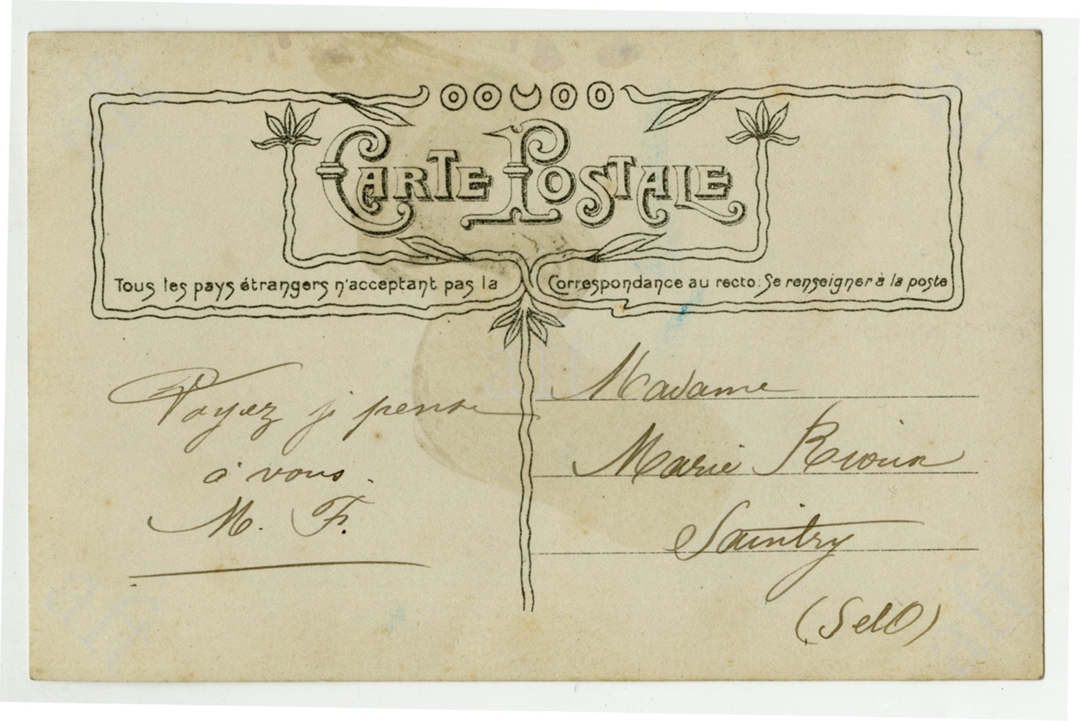 CARTE POSTALE
Tous les pays étrangers n'acceptant pas la Correspondance au recto: Se renseigner à la poste
Voyez j pense
à vous.
M. F.
Madame
Marie
Saintry
(SetO)